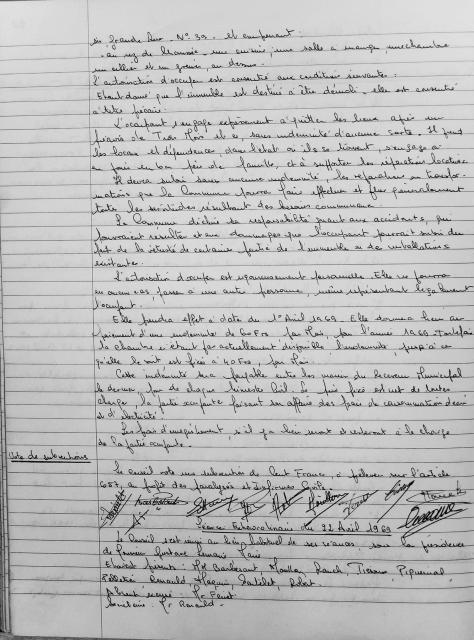 sis Grande Rue - N° 39 - et comprenant :
- au rez de chaussée - une cuisine, une salle à manger une chambre
un cellier et un grenier, au dessus.
L'autorisation d'occuper est consentie aux conditions suivantes :
Etant donné que l'immeuble est destiné à être démoli, elle est consentie
à titre précaire.
L'occupant s'engage expressément à quitter les lieux après un
préavis de Trois Mois et ce, sans indemnité d'aucune sorte. Il prend
les locaux et dépendances, dans l'état où ils se trouvent, s'engage à
en jouir en bon père de famille, et à supporter les réparations locatives
Il devra subir sans aucune indemnité, les réparations ou transfor-
mations que la Commune pourra faire effectuer et plus généralement
toutes les servitudes résultant des besoins communaux.
La Commune décline sa responsabilité quant aux accidents, qui
pourraient résulter et aux dommages que l'occupant pourrait subir du
fait de la vétusté de certaines parties de l'immeuble ou des installations
existantes.
L'autorisation d'occuper est rigoureusement personnelle. Elle ne pourra
en aucun cas, passer à une autre personne, même représentant légalement
l'occupant.
Elle prendra effet à dater du 1er Avril 1969. Elle donnera lieu au
paiement d'une indemnité de 60 Frs par Mois, pour l'année 1969. Toutefois
la chambre n'étant pas actuellement disponible l'indemnité, jusqu'à ce
qu'elle le soit est fixée à 40 Frs, par Mois.
Cette indemnité sera payable entre les mains du Receveur Municipal
le dernier, jour de chaque trimestre civil. Le prix fixé est net de toutes
charges, la partie occupante faisant son affaire des frais de consommation d'eau
et d'électricité.
Les frais d'enregistrement, s'il y a lieu sont et resteront à la charge
de la partie occupante.
Vote de subventions
Le Conseil vote une subvention de Cent Francs, à prélever sur l'article
657, au profit des Paralysés et Infirmes Civils.
Séance Extraordinaire du 22 Avril 1969
Le Conseil s'est réuni au lieu habituel de ses séances, sous la présidence
de Monsieur Gustave Maire
Etaient présents : MM Barbesant Moulin, Tisseau, Piguenial
Pelletié Renauld, Robert.
Absent excusé : Mr Feuet
Secrétaire : Mr Renauld.